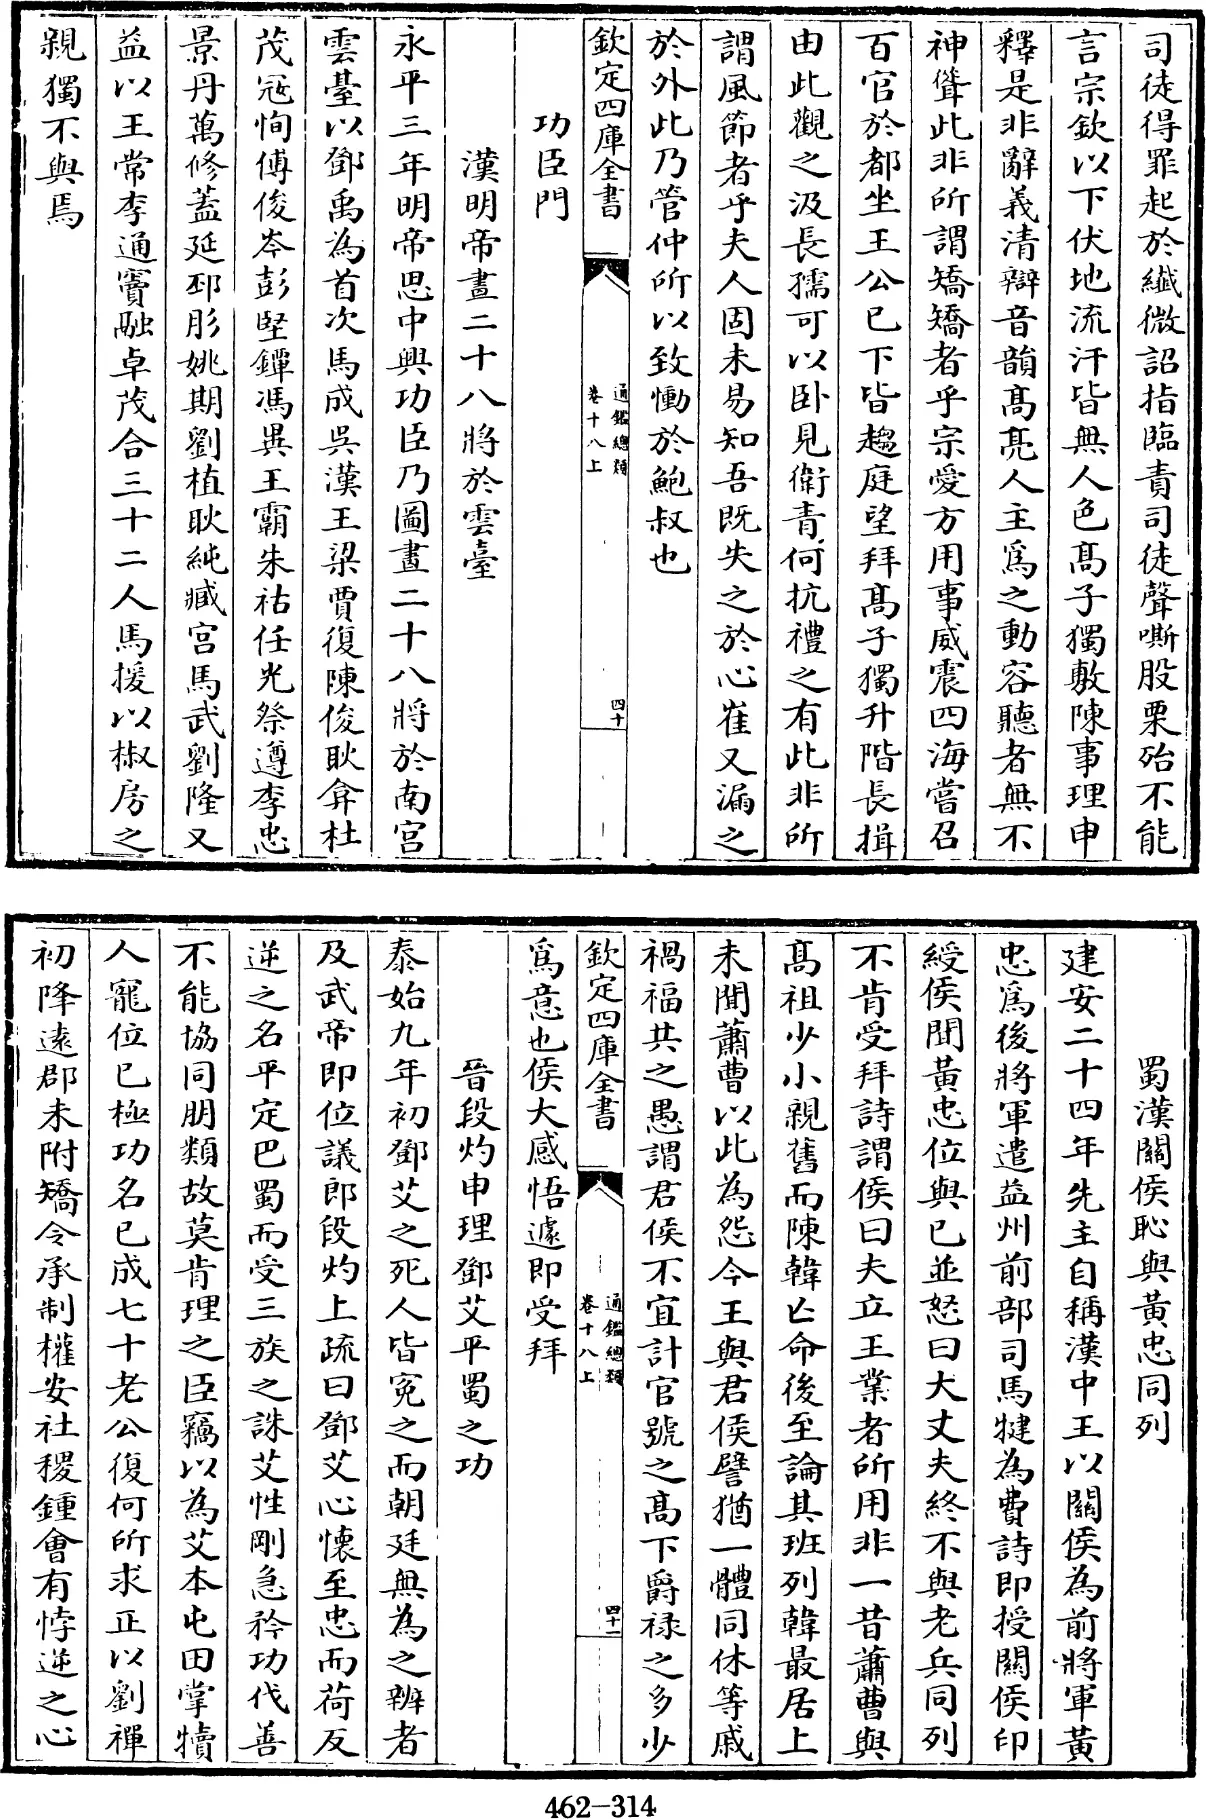 司徒得罪起於纎微詔指臨責司徒聲嘶股栗殆不能
言宗欽以下伏地流汗皆無人色髙子獨敷陳事理申
釋是非辭義清辯音韻髙亮人主爲之動容聽者無不
神聳此非所謂矯矯者乎宗愛方用事威震四海嘗召
百官於都坐王公已下皆趨庭望拜髙子獨升階長揖
由此觀之汲長孺可以卧見衛青何抗禮之有此非所
謂風節者乎夫人固未易知吾既失之於心崔又漏之
於外此乃管仲所以致慟於鮑叔也
欽定四庫全書
通鑑總類
卷十八上
四十
功臣門
漢明帝畫二十八將於雲臺
永平三年明帝思中興功臣乃圖畫二十八將於南宫
雲臺以鄧禹為首次馬成吳漢王梁賈復陳俊耿弇杜
茂冦恂傅俊岑彭堅鐔馮異王霸朱祜任光祭遵李忠
景丹萬修蓋延邳肜姚期劉植耿純臧宫馬武劉隆又
益以王常李通竇融卓茂合三十二人馬援以椒房之
親獨不與焉
蜀漢關侯恥與黃忠同列
建安二十四年先主自稱漢中王以關侯為前將軍黃
忠爲後將軍遣益州前部司馬犍為費詩即授關侯印
綬侯聞黃忠位與已並怒曰大丈夫終不與老兵同列
不肯受拜詩謂侯曰夫立王業者所用非一昔蕭曹與
髙祖少小親舊而陳韓亡命後至論其班列韓最居上
未聞蕭曹以此為怨今王與君侯譬猶一體同休等戚
禍福共之愚謂君侯不宜計官號之髙下爵禄之多少
欽定四庫全書
通鑑總類
卷十八上
四十一
爲意也侯大感悟遽即受拜
晉段灼申理鄧艾平蜀之功
泰始九年初鄧艾之死人皆寃之而朝廷無為之辨者
及武帝即位議郎段灼上疏曰鄧艾心懷至忠而荷反
逆之名平定巴蜀而受三族之誅艾性剛急矜功伐善
不能協同朋類故莫肯理之臣竊以為艾本屯田掌犢
人寵位已極功名已成七十老公復何所求正以劉禪
初降遠郡未附矯令承制權安社稷鍾會有悖逆之心
462-314